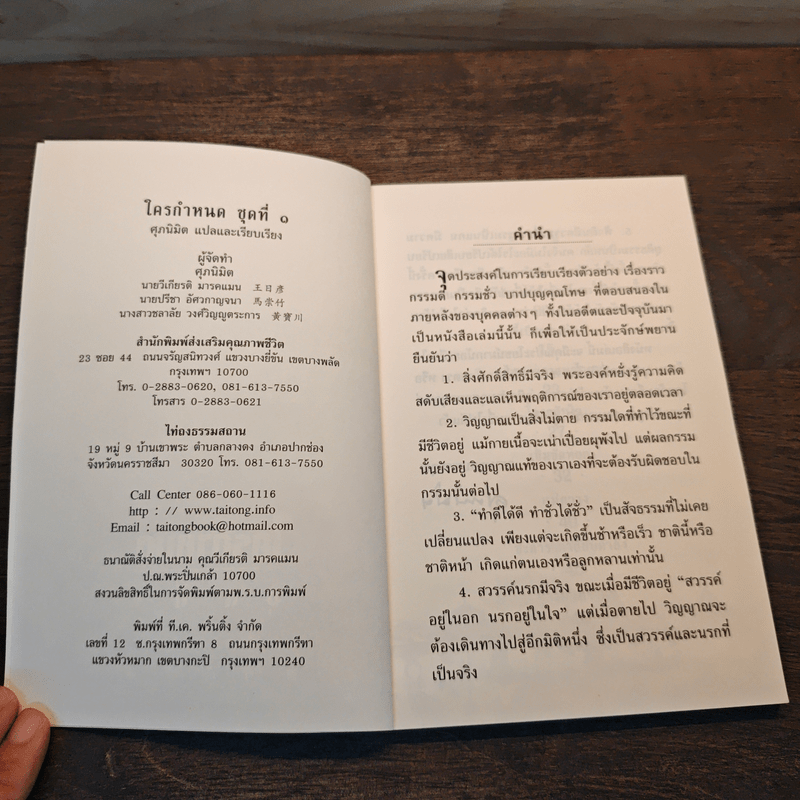 ใครกำหนด ชุดที่ ๑
ศุภนิมิต แปลและเรียบเรียง
ผู้จัดทำ
ศุภนิมิต
นายวีเกียรติ มารคแมน 王日彥
นายปรีชา อัศวกาญจนา 馬崇竹
นางสาวชลาลัย วงศ์วิญญูตระการ 黃寶川
สำนักพิมพ์ส่งเสริมคุณภาพชีวิต
23 ซอย 44 ถนนจรัญสนิทวงศ์ แขวงบางยี่ขัน เขตบางพลัด
กรุงเทพฯ 10700
โทร. 0-2883-0620, 081-613-7550
โทรสาร 0-2883-0621
ไท่ถงธรรมสถาน
19 หมู่ 9 บ้านเขาพระ ตำบลกลางดง อำเภอปากช่อง
จังหวัดนครราชสีมา 30320 โทร. 081-613-7550
Call Center 086-060-1116
http : // www.taitong.info
Email : taitongbook@hotmail.com
ธนาณัติสั่งจ่ายในนาม คุณวีเกียรติ มารคแมน
ป.ณ.พระปิ่นเกล้า 10700
สงวนลิขสิทธิ์ในการจัดพิมพ์ตามพ.ร.บ.การพิมพ์
พิมพ์ที่ ที.เค. พริ้นติ้ง จำกัด
เลขที่ 12 ซ.กรุงเทพกรีฑา 8 ถนนกรุงเทพกรีฑา
แขวงหัวหมาก เขตบางกะปิ กรุงเทพฯ 10240
คำนำ
จุดประสงค์ในการเรียบเรียงตัวอย่าง เรื่องราว
กรรมดี กรรมชั่ว บาปบุญคุณโทษ ที่ตอบสนองใน
ภายหลังของบุคคลต่างๆ ทั้งในอดีตและปัจจุบันมา
เป็นหนังสือเล่มนี้นั้น ก็เพื่อให้เป็นประจักษ์พยาน
ยืนยันว่า
1. สิ่งศักดิ์สิทธิ์มีจริง พระองค์หยั่งรู้ความคิด
สดับเสียงและแลเห็นพฤติการณ์ของเราอยู่ตลอดเวลา
2. วิญญาณเป็นสิ่งไม่ตาย กรรมใดที่ทำไว้ขณะที่
มีชีวิตอยู่ แม้กายเนื้อจะเน่าเปื่อยผุพังไป แต่ผลกรรม
นั้นยังอยู่ วิญญาณแท้ของเราเองที่จะต้องรับผิดชอบใน
กรรมนั้นต่อไป
3. “ทำดีได้ดี ทำชั่วได้ชั่ว” เป็นสัจธรรมที่ไม่เคย
เปลี่ยนแปลง เพียงแต่จะเกิดขึ้นช้าหรือเร็ว ชาตินี้หรือ
ชาติหน้า เกิดแก่ตนเองหรือลูกหลานเท่านั้น
4. สวรรค์นรกมีจริง ขณะเมื่อมีชีวิตอยู่ “สวรรค์
อยู่ในอก นรกอยู่ในใจ” แต่เมื่อตายไป วิญญาณจะ
ต้องเดินทางไปสู่อีกมิติหนึ่ง ซึ่งเป็นสวรรค์และนรกที่
เป็นจริง